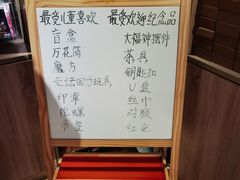 最受儿童喜欢
盲盒
万花筒
魔方
无话回力玩具
印章
陀螺
书签
最受欢迎纪念品
大福神摆件
茶具
钥匙扣
U盘
丝巾
对联
红包